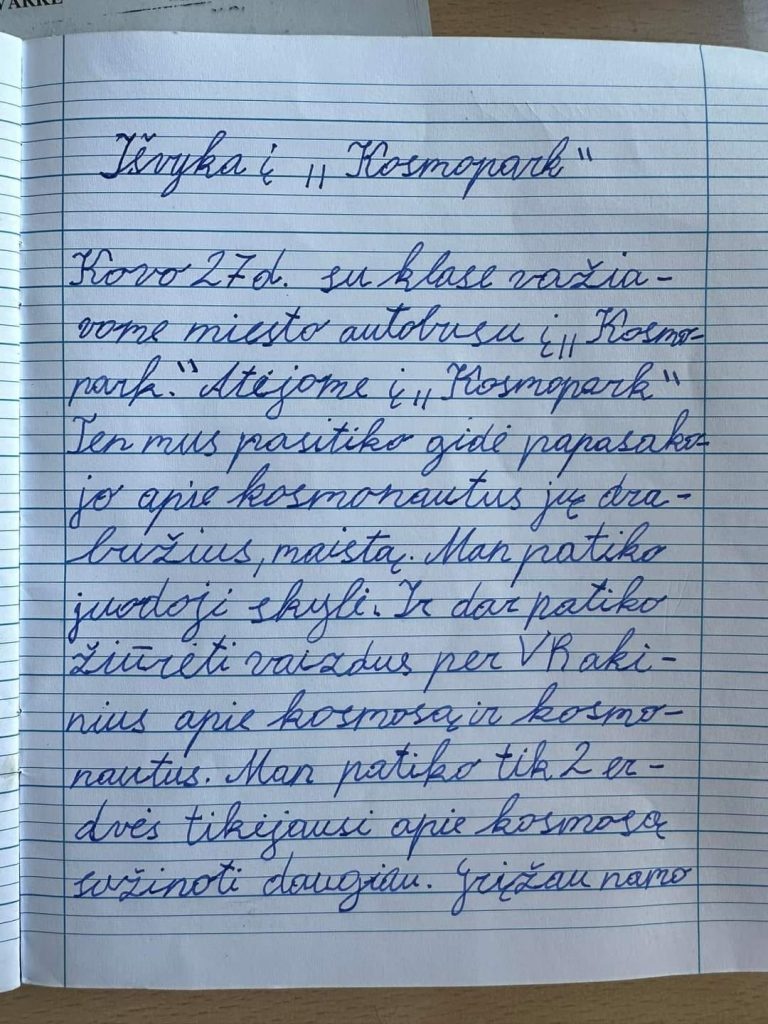 VARKĖ
Išvyka į „Kosmopark"
Kovo 27d. su klase važia-
vome miesto autobusu į „Kosmo-
park." Atėjome į „Kosmopark"
Ten mus pasitiko gidė papasako-
jo apie kosmonautus jų dra-
bužius, maistą. Man patiko
juodoji skylė. Ir dar patiko
žiūrėti vaizdus per VR aki-
nius apie kosmosą ir kosmo-
nautus. Man patiko tik 2 er-
dvės tikėjausi apie kosmosą
sužinoti daugiau. Grįžau namo